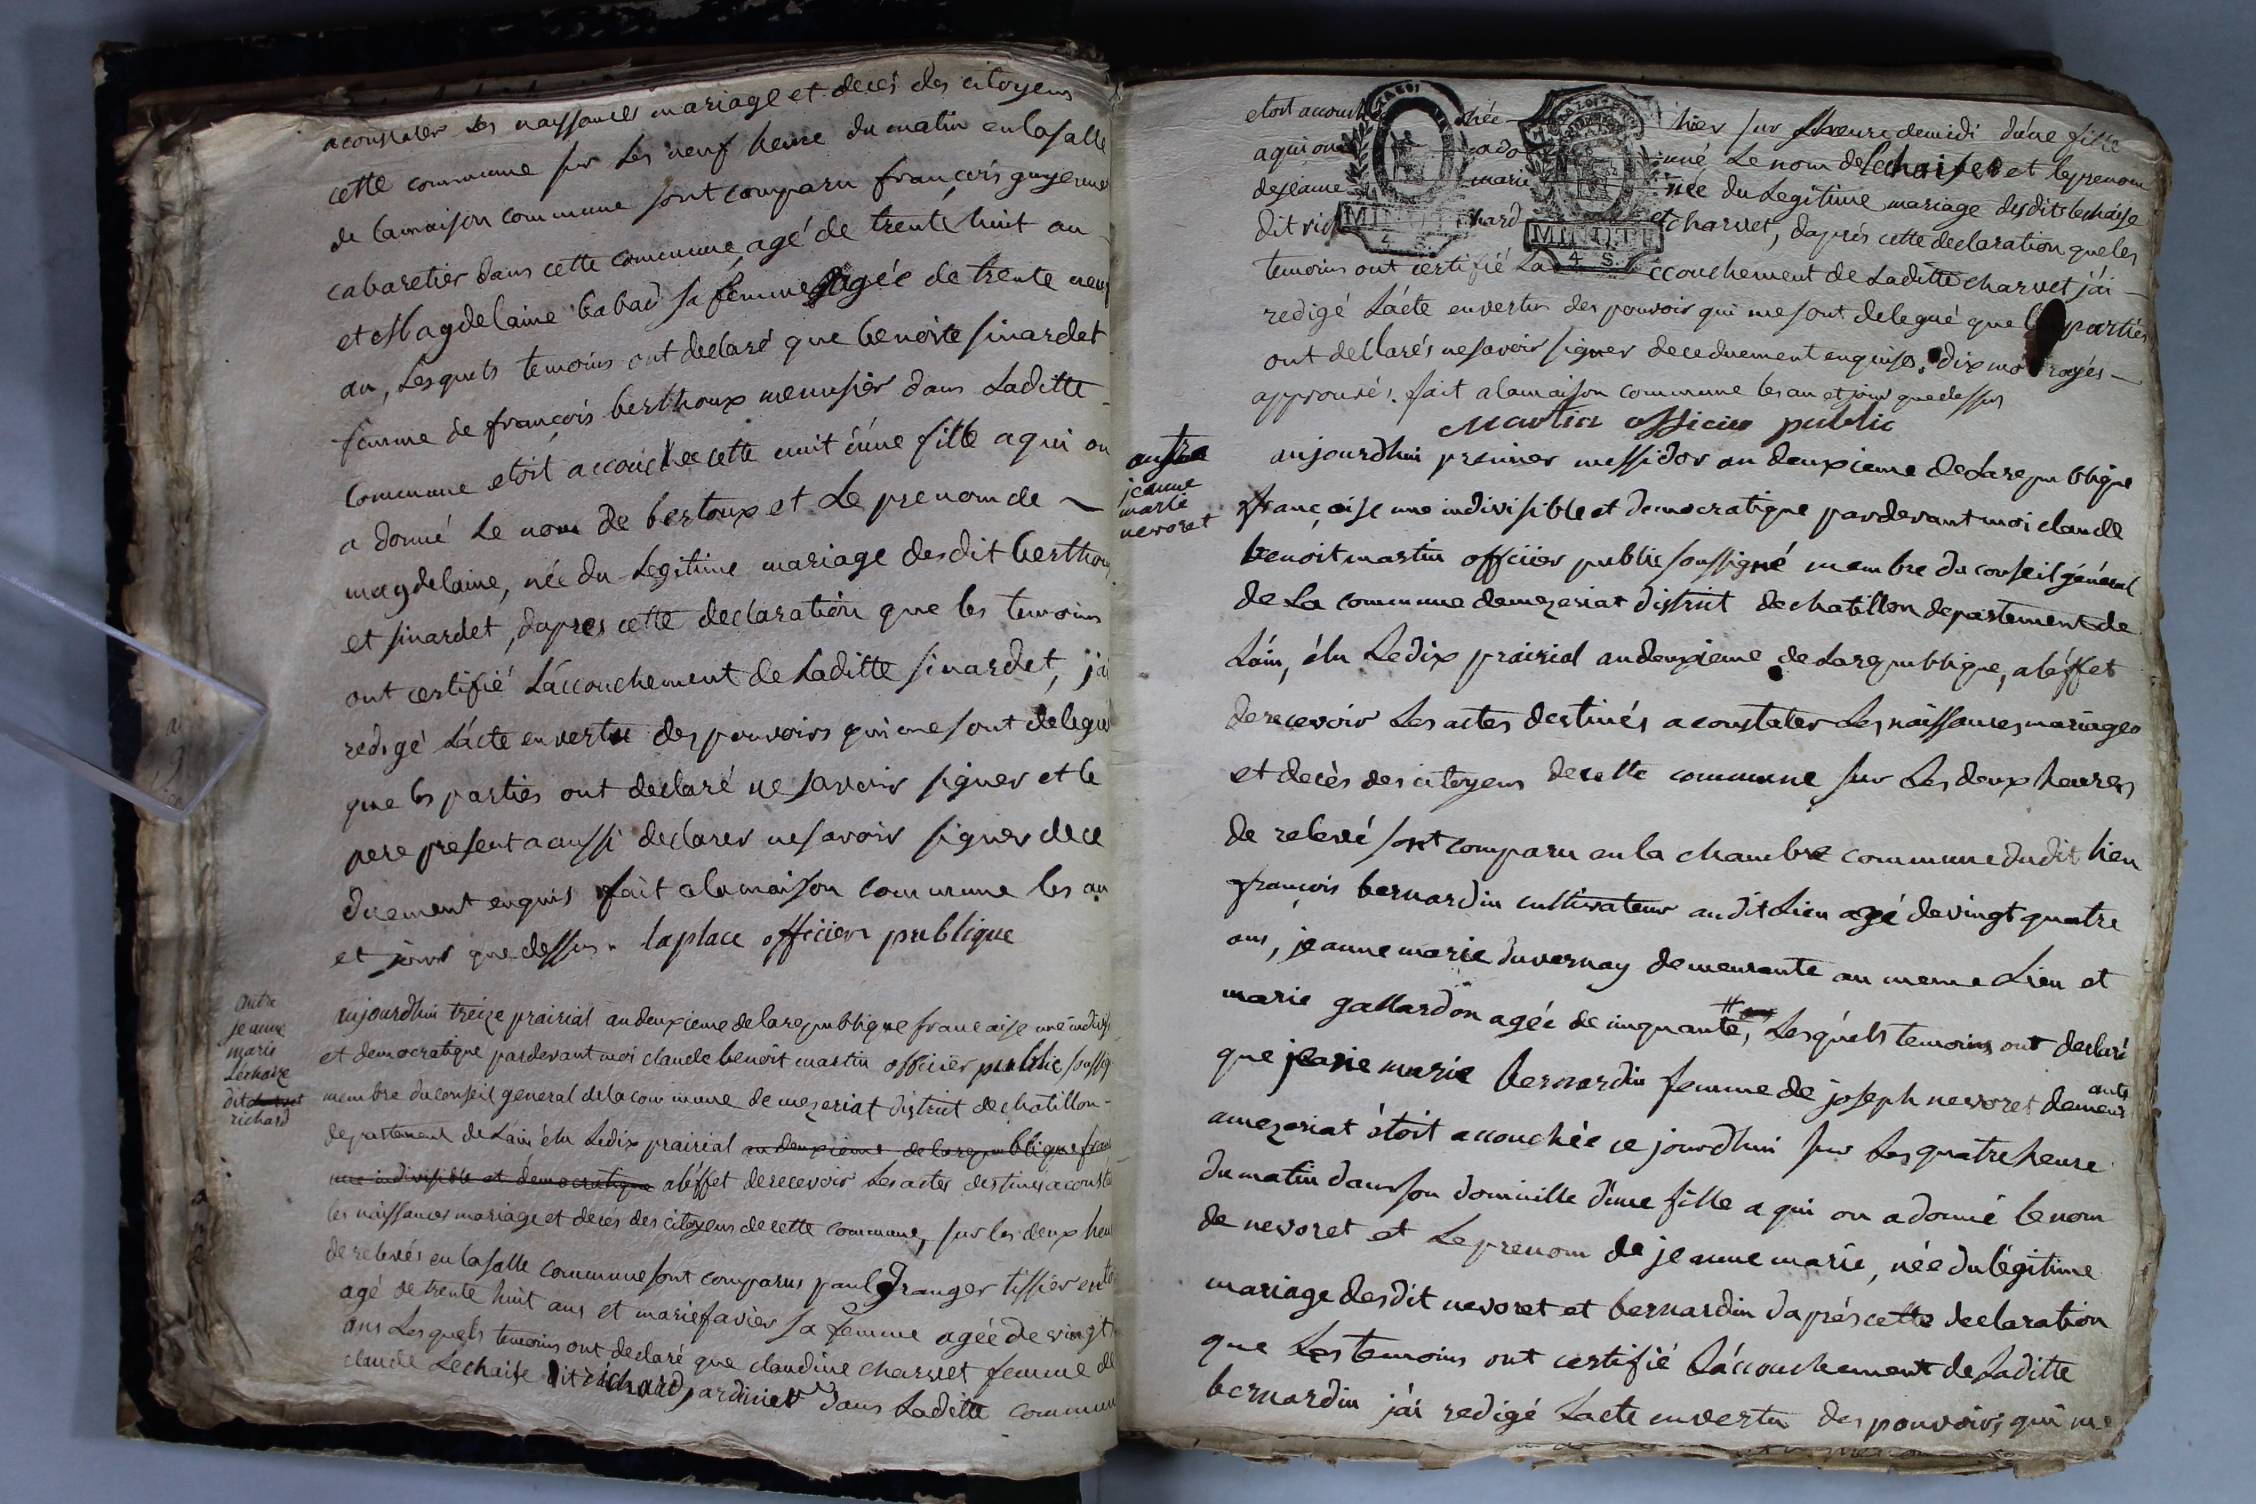 a constater les naissances mariage et deces des citoyens
cette commune sur les neuf heure du matin en la salle
de la maison commune sont comparu françois guyennet
cabaretier dans cette commune, agé de trente huit an
et Magdelaine babad sa femme agée de trente neuf
an, Lesquels temoins ont declaré que benoite sinardet
femme de françois berthoux menusier dans Laditte
commune etoit accouchee cette nuit d'une fille a qui on
a donné Le nom de bertoux et Le prenom de
magdelaine, née du Legitime mariage desdit berthoux
et sinardet, dapres cette declaration que les temoins
ont certifié L'accouchement de Laditte sinardet, j'ai
redigé L'acte en vertu des pouvoirs qui me sont delegué
que les parties ont declaré ne savoir signer et le
pere present a aussi declarer ne savoir signer de ce
duement enquis fait a la maison commune les an
et jour que dessus. laplace officier publique
autre
jeanne
marie
Lechaize
dit charvet
richard
aujourdhui treize prairial an deuxieme de la republique francaise une indivisi
et democratique pardevant moi claude benoit martin officier public soussig
membre du conseil general de la commune de mezeriat district de chatillon
departement de L'ain élu Le dix prairial an deuxieme de la republique fran
une indivisible et démocratique a l'éffet de recevoir Les actes destinés a consta
les naissances mariage et decés des citoyens de cette commune, sur les deux heu
de relevés en la salle commune sont comparus paul Granger tissier en to
agé de trente huit ans et marie favier sa femme agée de vingt
ans Lesquels temoins ont declaré que claudine charvet femme de
claude Lechaise dit richard, jardinier dans Laditte commun
etoit accouchée hier sur L'heure de midi d'une fille
a qui on a donné Le nom de Lechaise et le prenom
de jeanne marie née du Legitime mariage desdit lechaise
dit richard et charvet, daprés cette declaration que les
temoins ont certifié L'accouchement de Laditte charvet j'ai
redigé L'acte en vertu des pouvoir qui me sont delegué que les parties
ont dellarés ne savoir signer de ce duement enquises. dix mot rayés
approuvés. fait a la maison commune les an et jour que dessus
Martin officier public
MINUTE
4 S.
MINUTE
4 S.
autre
jeanne
marie
nevoret
aujourdhui premier messidor an deuxieme de La republique
françoise une indivisible et democratique pardevant moi claude
benoit martin officier public soussigné membre du conseil général
de La commune de mezeriat district de chatillon departement de
L'ain, élu Le dix prairial an deuxieme de La republique, a l'éffet
de recevoir Les actes destinés a constater Les naissances mariages
et decès des citoyens de cette commune sur Les deux heures
de relevé sont comparu en la chambre commune dudit lieu
françois bernardin cultivateur audit Lieu agé de vingt quatre
ans, jeanne marie duvernay demeurante au meme Lieu et
marie gallardon agée de cinquante, Lesquels temoins ont declaré
que jeane marie bernardin femme de joseph nevoret demeurante
a mezeriat étoit accouchée ce jourdhui sur Les quatre heure
du matin dans son domicille d'une fille a qui on a donné le nom
de nevoret et Le prenom de jeanne marie, née du légitime
mariage desdit nevoret et bernardin daprés cette declaration
que Les temoins ont certifié L'accouchement de Laditte
bernardin j'ai redigé L'acte en vertu des pouvoirs qui me